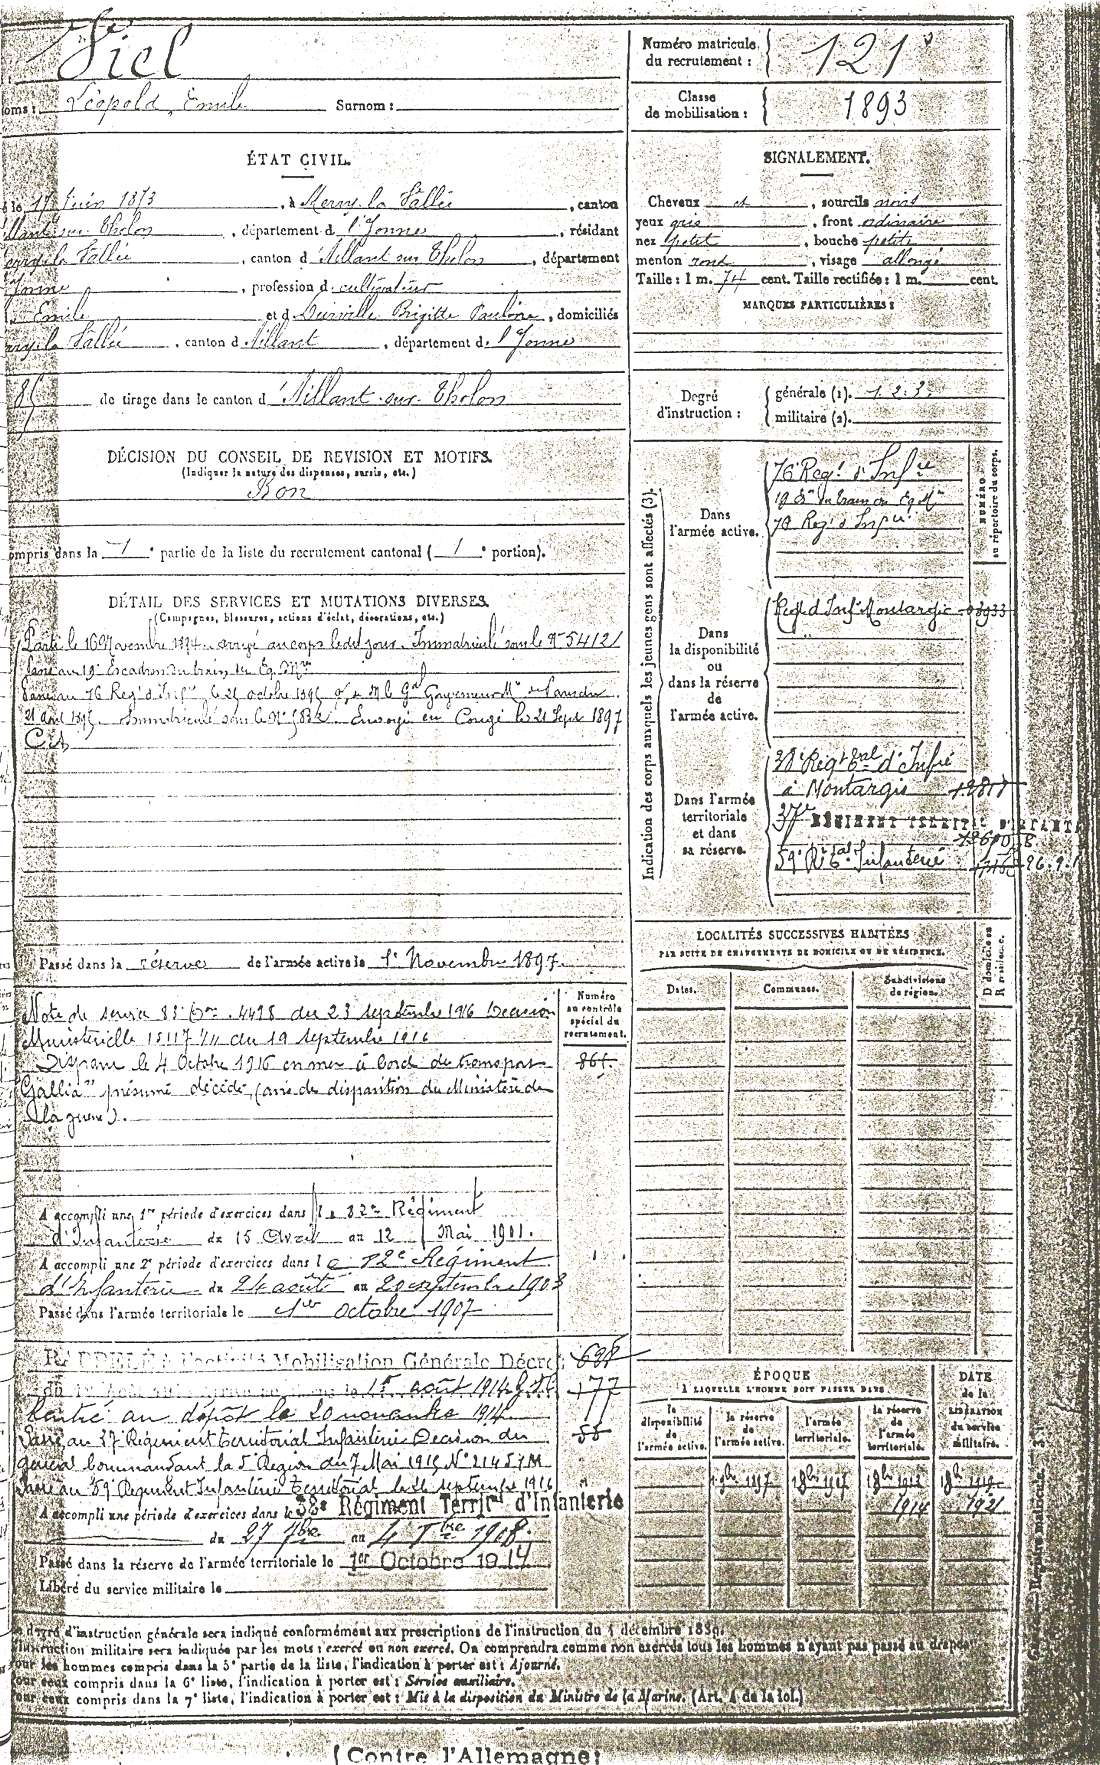 Viel
Numéro matricule du recrutement : 121
oms : Léopold, Emile Surnom :
Classe de mobilisation : 1893
ÉTAT CIVIL.
é le 17 Juin 1873, à Merry la Vallée, canton
illant sur Tholon, département d l'Yonne, résidant
erry la Vallée, canton d'Aillant sur Tholon, département
Yonne, profession de cultivateur
Emile et d Brigitte Pauline, domiciliés
erry la Vallée, canton d'Aillant, département de l'Yonne
85 de tirage dans le canton d'Aillant-sur-Tholon
SIGNALEMENT.
Cheveux et, sourcils noirs
yeux gris, front ordinaire
nez petit, bouche petite
menton rond, visage allongé
Taille : 1 m. 74 cent. Taille rectifiée : 1 m. cent.
MARQUES PARTICULIÈRES :
Degré d'instruction :
générale (1). 1.2.3.
militaire (2).
DÉCISION DU CONSEIL DE REVISION ET MOTIFS.
(Indiquer la nature des dispenses, sursis, etc.)
Bon
ompris dans la 1e partie de la liste du recrutement cantonal ( 1e portion).
Indication des corps auxquels les jeunes gens sont affectés (3).
NUMÉRO au répertoire du corps.
Dans l'armée active.
76 Regt d'Infrie
19 Eon du train des Eq. Mres
76 Reg. d'Infrie
Dans la disponibilité ou dans la réserve de l'armée active.
Regt d'Infie Montargis 03933
Dans l'armée territoriale et dans sa réserve.
38e Régt tal d'Infie
à Montargis 12818
37e RÉGIMENT TERRITAL D'INFANTE
59e Rt tal Infanterie
DÉTAIL DES SERVICES ET MUTATIONS DIVERSES.
(Campagnes, blessures, actions d'éclat, décorations, etc.)
Parti le 16 Novembre 1894 arrivé au corps ledit jour. Immatriculé sous le No 54121
Passé au 19e Escadron du train des Eq. Mres
Passé au 76 Reg. d'Infie le 25 octobre 1895 Mr le Gal Gouverneur Mre de Paris du
21 1895. Immatriculé sous le No Envoyé en Congé le 21 Sept 1897
Passé dans la réserve de l'armée active le 1er Novembre 1897.
Numéro au contrôle spécial du recrutement.
Note de service 4498 du 23 septembre 1916 Décision
Ministérielle 15117 1/11 du 19 septembre 1916
Disparu le 4 Octobre 1916 en mer à bord du transport
"Gallia" présumé décédé (avis de disparition du Ministère de
la guerre).
865.
LOCALITÉS SUCCESSIVES HABITÉES
PAR SUITE DE CHANGEMENTS DE DOMICILE OU DE RÉSIDENCE.
Dates. Communes. Subdivisions de région. D domicile ou R résidence.
A accompli une 1re période d'exercices dans le 82e Régiment
d'Infanterie du 15 Avril au 12 Mai 1901.
A accompli une 2e période d'exercices dans le 82e Régiment
d'Infanterie du 24 août au 20 septembre 1903
Passé dans l'armée territoriale le 1er octobre 1907
RAPPELÉ à l'activité Mobilisation Générale Décret
du 1er Août 1914 le 15 août 1914
177
Rentré au dépôt le 20 novembre 1914
Passé au 37 Régiment Territorial Infanterie Décision du
Général Commandant la 5e Région du 7 Mai 1915 No 21457 M
Passé au 59e Régiment Infanterie Territorial le 26 septembre 1916
A accompli une période d'exercices dans le 38e Régiment Territal d'Infanterie
du 27 7bre au 4 1908.
Passé dans la réserve de l'armée territoriale le 1er Octobre 1914
Libéré du service militaire le
ÉPOQUE
À LAQUELLE L'HOMME DOIT PASSER DANS
la disponibilité de l'armée active. la réserve de l'armée active. l'armée territoriale. la réserve de l'armée territoriale.
DATE de la LIBÉRATION du service militaire.
1 9bre 1897 1 8bre 1907
1914 1921
Le degré d'instruction générale sera indiqué conformément aux prescriptions de l'instruction du 4 décembre 1889.
instruction militaire sera indiquée par les mots : exercé ou non exercé. On comprendra comme non exercés tous les hommes n'ayant pas passé au drapeau
our les hommes compris dans la 5e partie de la liste, l'indication à porter est : Ajourné.
our ceux compris dans la 6e liste, l'indication à porter est : Service auxiliaire.
our ceux compris dans la 7e liste, l'indication à porter est : Mis à la disposition du Ministre de la Marine. (Art. 4 de la loi.)
Registre matricule.
(Contre l'Allemagne: